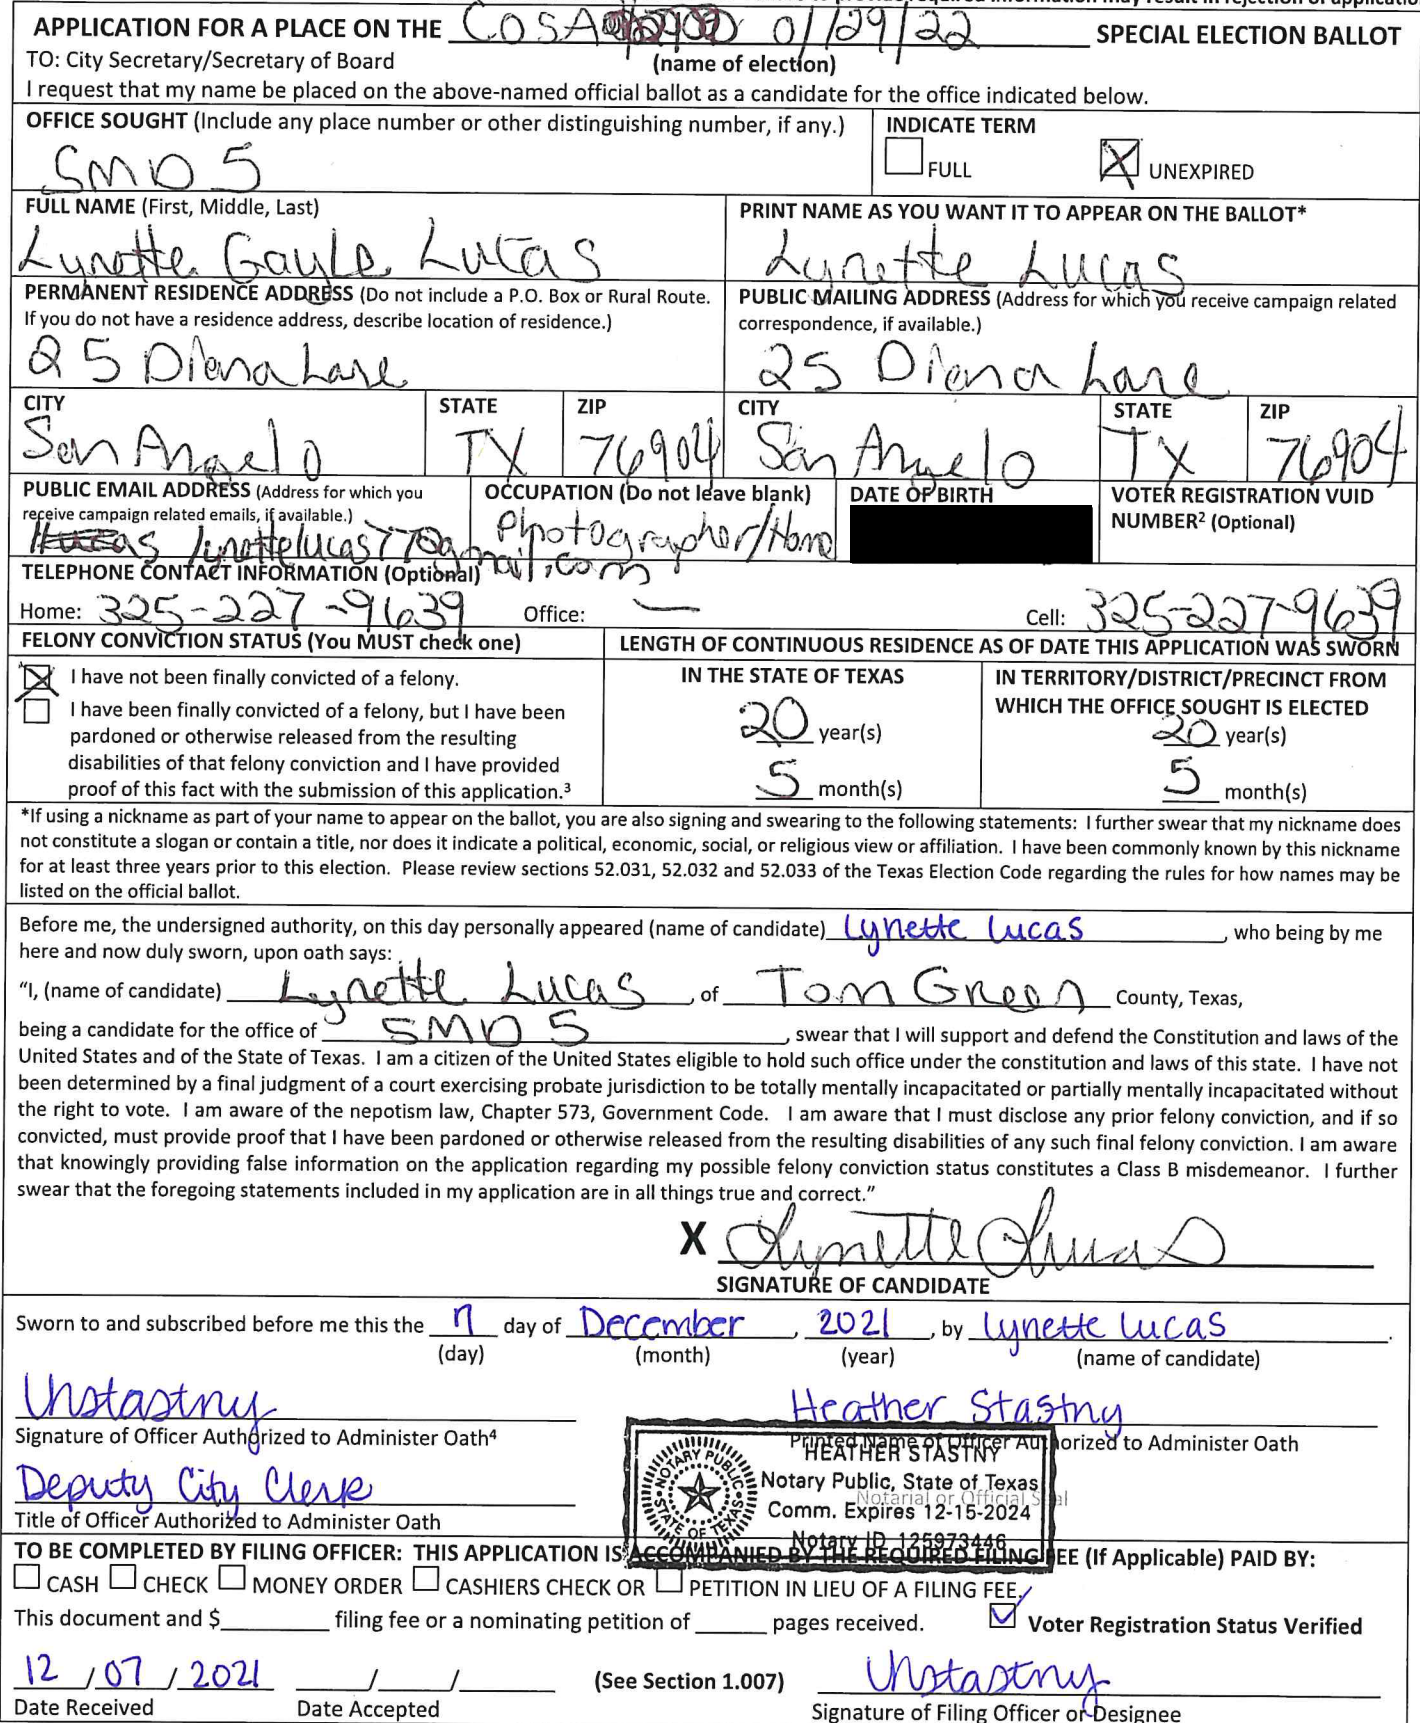 APPLICATION FOR A PLACE ON THE COSA 01/29/22 SPECIAL ELECTION BALLOT
TO: City Secretary/Secretary of Board (name of election)
I request that my name be placed on the above-named official ballot as a candidate for the office indicated below.
OFFICE SOUGHT (Include any place number or other distinguishing number, if any.)
SMD 5
INDICATE TERM
FULL X UNEXPIRED
FULL NAME (First, Middle, Last)
Lynette Gayle Lucas
PRINT NAME AS YOU WANT IT TO APPEAR ON THE BALLOT*
Lynette Lucas
PERMANENT RESIDENCE ADDRESS (Do not include a P.O. Box or Rural Route.
If you do not have a residence address, describe location of residence.)
25 Diana Lane
PUBLIC MAILING ADDRESS (Address for which you receive campaign related
correspondence, if available.)
25 Diana Lane
CITY STATE ZIP CITY STATE ZIP
San Angelo TX 76904 San Angelo TX 76904
PUBLIC EMAIL ADDRESS (Address for which you
receive campaign related emails, if available.)
lynettelucas77@gmail.com
OCCUPATION (Do not leave blank)
Photographer/Home
DATE OF BIRTH
VOTER REGISTRATION VUID
NUMBER² (Optional)
TELEPHONE CONTACT INFORMATION (Optional)
Home: 325-227-9639 Office: — Cell: 325-227-9639
FELONY CONVICTION STATUS (You MUST check one)
X I have not been finally convicted of a felony.
I have been finally convicted of a felony, but I have been
pardoned or otherwise released from the resulting
disabilities of that felony conviction and I have provided
proof of this fact with the submission of this application.³
LENGTH OF CONTINUOUS RESIDENCE AS OF DATE THIS APPLICATION WAS SWORN
IN THE STATE OF TEXAS
20 year(s)
5 month(s)
IN TERRITORY/DISTRICT/PRECINCT FROM
WHICH THE OFFICE SOUGHT IS ELECTED
20 year(s)
5 month(s)
*If using a nickname as part of your name to appear on the ballot, you are also signing and swearing to the following statements: I further swear that my nickname does
not constitute a slogan or contain a title, nor does it indicate a political, economic, social, or religious view or affiliation. I have been commonly known by this nickname
for at least three years prior to this election. Please review sections 52.031, 52.032 and 52.033 of the Texas Election Code regarding the rules for how names may be
listed on the official ballot.
Before me, the undersigned authority, on this day personally appeared (name of candidate) Lynette Lucas, who being by me
here and now duly sworn, upon oath says:
"I, (name of candidate) Lynette Lucas, of Tom Green County, Texas,
being a candidate for the office of SMD 5, swear that I will support and defend the Constitution and laws of the
United States and of the State of Texas. I am a citizen of the United States eligible to hold such office under the constitution and laws of this state. I have not
been determined by a final judgment of a court exercising probate jurisdiction to be totally mentally incapacitated or partially mentally incapacitated without
the right to vote. I am aware of the nepotism law, Chapter 573, Government Code. I am aware that I must disclose any prior felony conviction, and if so
convicted, must provide proof that I have been pardoned or otherwise released from the resulting disabilities of any such final felony conviction. I am aware
that knowingly providing false information on the application regarding my possible felony conviction status constitutes a Class B misdemeanor. I further
swear that the foregoing statements included in my application are in all things true and correct."
X Lynette Lucas
SIGNATURE OF CANDIDATE
Sworn to and subscribed before me this the 7 day of December, 2021, by Lynette Lucas.
(day) (month) (year) (name of candidate)
Hstastny Heather Stastny
Signature of Officer Authorized to Administer Oath⁴ Printed Name of Officer Authorized to Administer Oath
Deputy City Clerk
Title of Officer Authorized to Administer Oath
Notarial or Official Seal
NOTARY PUBLIC
STATE OF TEXAS
HEATHER STASTNY
Notary Public, State of Texas
Comm. Expires 12-15-2024
Notary ID 125973446
TO BE COMPLETED BY FILING OFFICER: THIS APPLICATION IS ACCOMPANIED BY THE REQUIRED FILING FEE (If Applicable) PAID BY:
CASH CHECK MONEY ORDER CASHIERS CHECK OR PETITION IN LIEU OF A FILING FEE.
This document and $ filing fee or a nominating petition of pages received. Voter Registration Status Verified
12 / 07 / 2021 / / (See Section 1.007) Hstastny
Date Received Date Accepted Signature of Filing Officer or Designee